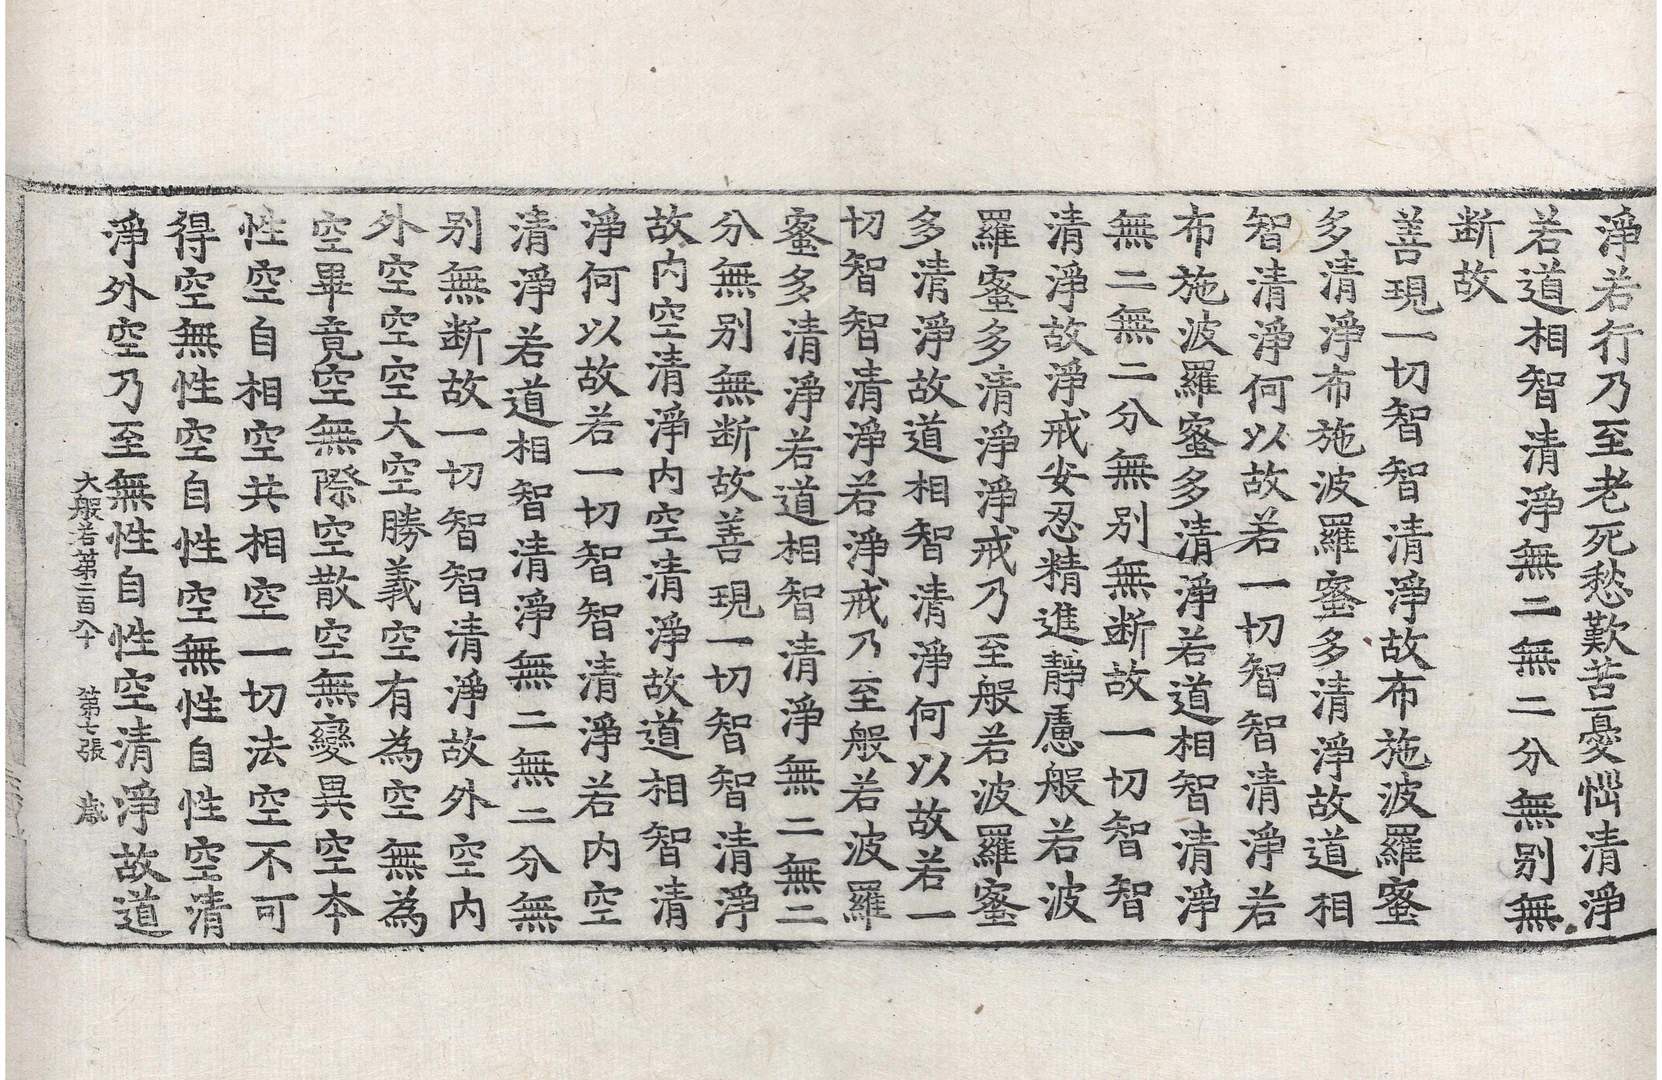 淨若行乃至老死愁歎苦憂惱清淨
若道相智清淨無二無二分無别無
断故
善現一切智智清淨故布施波羅蜜
多清淨布施波羅蜜多清淨故道相
智清淨何以故若一切智智清淨若
布施波羅蜜多清淨若道相智清淨
無二無二分無别無断故一切智智
清淨故淨戒安忍精進靜慮般若波
羅蜜多清淨淨戒乃至般若波羅蜜
多清淨故道相智清淨何以故若一
切智智清淨若淨戒乃至般若波羅
蜜多清淨若道相智清淨無二無二
分無别無断故善現一切智智清淨
故内空清淨内空清淨故道相智清
淨何以故若一切智智清淨若内空
清淨若道相智清淨無二無二分無
别無断故一切智智清淨故外空内
外空空空大空勝義空有為空無為
空畢竟空無際空散空無變異空本
性空自相空共相空一切法空不可
得空無性空自性空無性自性空清
淨外空乃至無性自性空清淨故道
大般若第二百八十 第七張